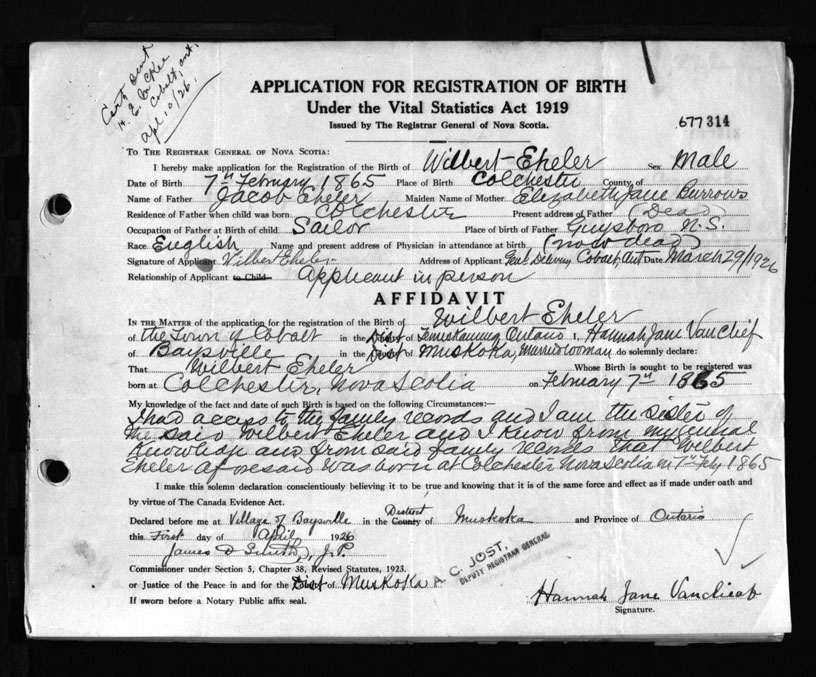 Cert sent
H. E. McKee
Cobalt, Ont.
Apl 10/26.
APPLICATION FOR REGISTRATION OF BIRTH
Under the Vital Statistics Act 1919
Issued by The Registrar General of Nova Scotia.
677314
To The Registrar General of Nova Scotia:
I hereby make application for the Registration of the Birth of Wilbert Eheler Sex Male
Date of Birth 7th February 1865 Place of Birth Colchester County of
Name of Father Jacob Eheler Maiden Name of Mother Elizabeth Jane Burrows
Residence of Father when child was born Colchester Present address of Father (Dead)
Occupation of Father at Birth of child Sailor Place of birth of Father Guysboro N.S.
Race English Name and present address of Physician in attendance at birth, (now dead)
Signature of Applicant Wilbert Eheler Address of Applicant Genl Delivery Cobalt, Ont Date March 29/1926
Relationship of Applicant to Child Applicant in person
AFFIDAVIT
In the Matter of the application for the registration of the Birth of Wilbert Eheler
of the Town of Cobalt in the Dist of Temiskaming Ontario I, Hannah Jane VanClief
of Baysville in the Dist of Muskoka, Married woman do solemnly declare:
That Wilbert Eheler Whose Birth is sought to be registered was
born at Colchester, Nova Scotia on February 7th 1865
My knowledge of the fact and date of such Birth is based on the following Circumstances:—
I had access to the family records and I am the sister of
the said Wilbert Eheler and I know from my general
Knowledge and from said family records that Wilbert
Eheler aforesaid was born at Colchester Nova Scotia on 7th Feby 1865
I make this solemn declaration conscientiously believing it to be true and knowing that it is of the same force and effect as if made under oath and
by virtue of The Canada Evidence Act.
Declared before me at Village of Baysville in the County District of Muskoka and Province of Ontario
this First day of April 1926
James D J.P.
Commissioner under Section 5, Chapter 38, Revised Statutes, 1923.
or Justice of the Peace in and for the Dist of Muskoka
If sworn before a Notary Public affix seal.
A. C. JOST,
DEPUTY REGISTRAR GENERAL
Hannah Jane Vanclieaf
Signature.